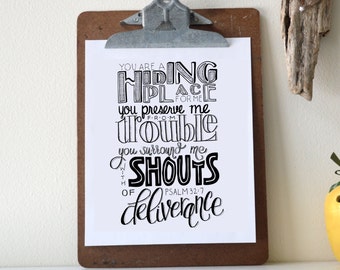 YOU ARE A
HIDING
PLACE
FOR ME
you preserve me
FROM
trouble
you surround me
WITH SHOUTS
OF PSALM 32:7
deliverance